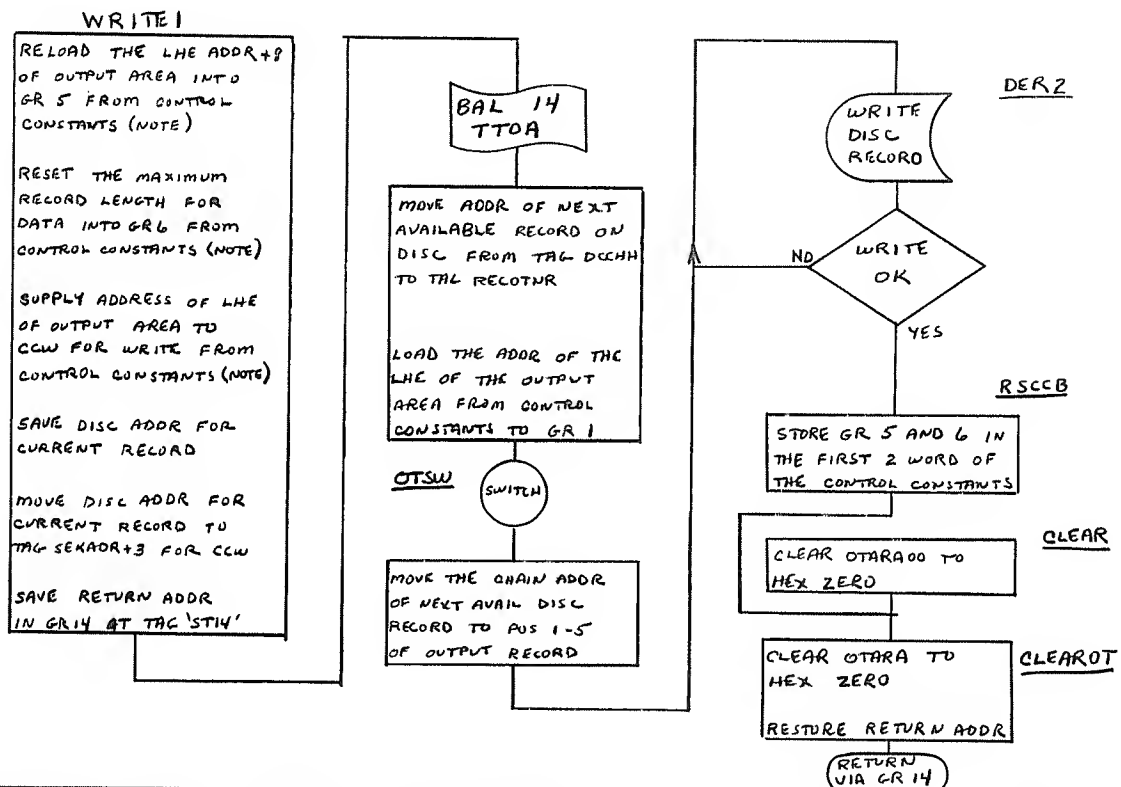 WRITE1
RELOAD THE LHE ADDR+8
OF OUTPUT AREA INTO
GR 5 FROM CONTROL
CONSTANTS (NOTE)
RESET THE MAXIMUM
RECORD LENGTH FOR
DATA INTO GR6 FROM
CONTROL CONSTANTS (NOTE)
SUPPLY ADDRESS OF LHE
OF OUTPUT AREA TO
CCW FOR WRITE FROM
CONTROL CONSTANTS (NOTE)
SAVE DISC ADDR FOR
CURRENT RECORD
MOVE DISC ADDR FOR
CURRENT RECORD TO
TAG SEKADR+3 FOR CCW
SAVE RETURN ADDR
IN GR14 AT TAG 'ST14'
BAL 14
TTOA
MOVE ADDR OF NEXT
AVAILABLE RECORD ON
DISC FROM TAG DCCHH
TO TAG RECOTNR
LOAD THE ADDR OF THE
LHE OF THE OUTPUT
AREA FROM CONTROL
CONSTANTS TO GR 1
OTSW
SWITCH
MOVE THE CHAIN ADDR
OF NEXT AVAIL DISC
RECORD TO POS 1-5
OF OUTPUT RECORD
DER2
WRITE
DISC
RECORD
WRITE
OK
NO
YES
RSCCB
STORE GR 5 AND 6 IN
THE FIRST 2 WORD OF
THE CONTROL CONSTANTS
CLEAR
CLEAR OTARA00 TO
HEX ZERO
CLEAROT
CLEAR OTARA TO
HEX ZERO
RESTORE RETURN ADDR
RETURN
VIA GR 14